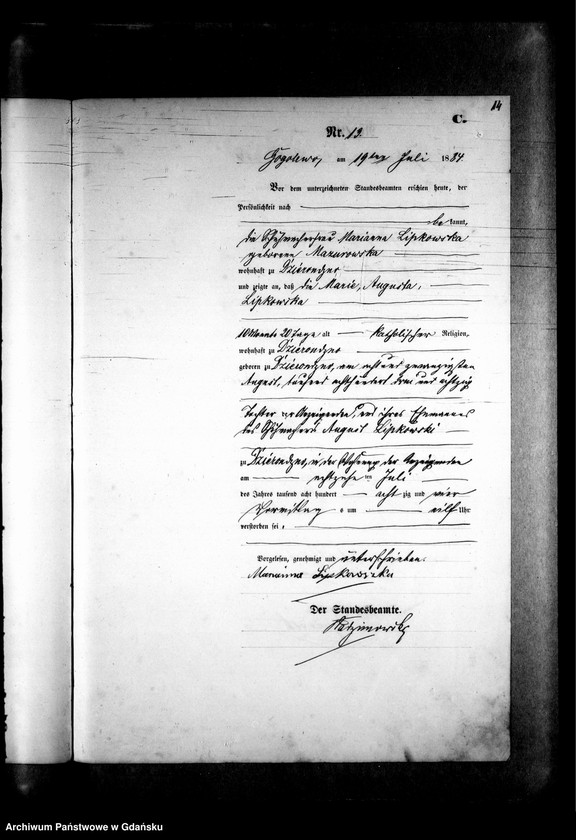 14
C.
Nr. 13.
Gogolewo, am 19ten Juli 1884.
Vor dem unterzeichneten Standesbeamten erschien heute, der
Persönlichkeit nach
be kannt,
die Schuhmacherfrau Marianna Lipkowska
geborene Mazurowska
wohnhaft zu Dzierondzno
und zeigte an, daß die Marie, Augusta,
Lipkowska
10 Monate 20 Tage alt katholischer Religion,
wohnhaft zu Dzierondzno
geboren zu Dzierondzno, am acht und zwanzigsten
August, tausend achthundert drei und achtzig
Tochter der Anzeigenden, und ihres Ehemannes
des Schuhmachers August Lipkowski
zu Dzierondzno, in der Wohnung der Anzeigenden
am achtzehn ten Juli
des Jahres tausend acht hundert acht zig und vier
Vormittags um eilf Uhr
verstorben sei,
Vorgelesen, genehmigt und unterschrieben.
Marianna Lipkowska
Der Standesbeamte.
Archiwum Państwowe w Gdańsku